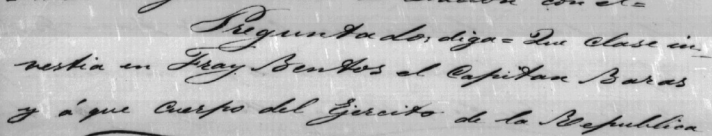 con el=
Preguntado, diga= Que clase in_
vestia en Fray Bentos el Capitan Baras
y á que Cuerpo del Ejercito de la Republica